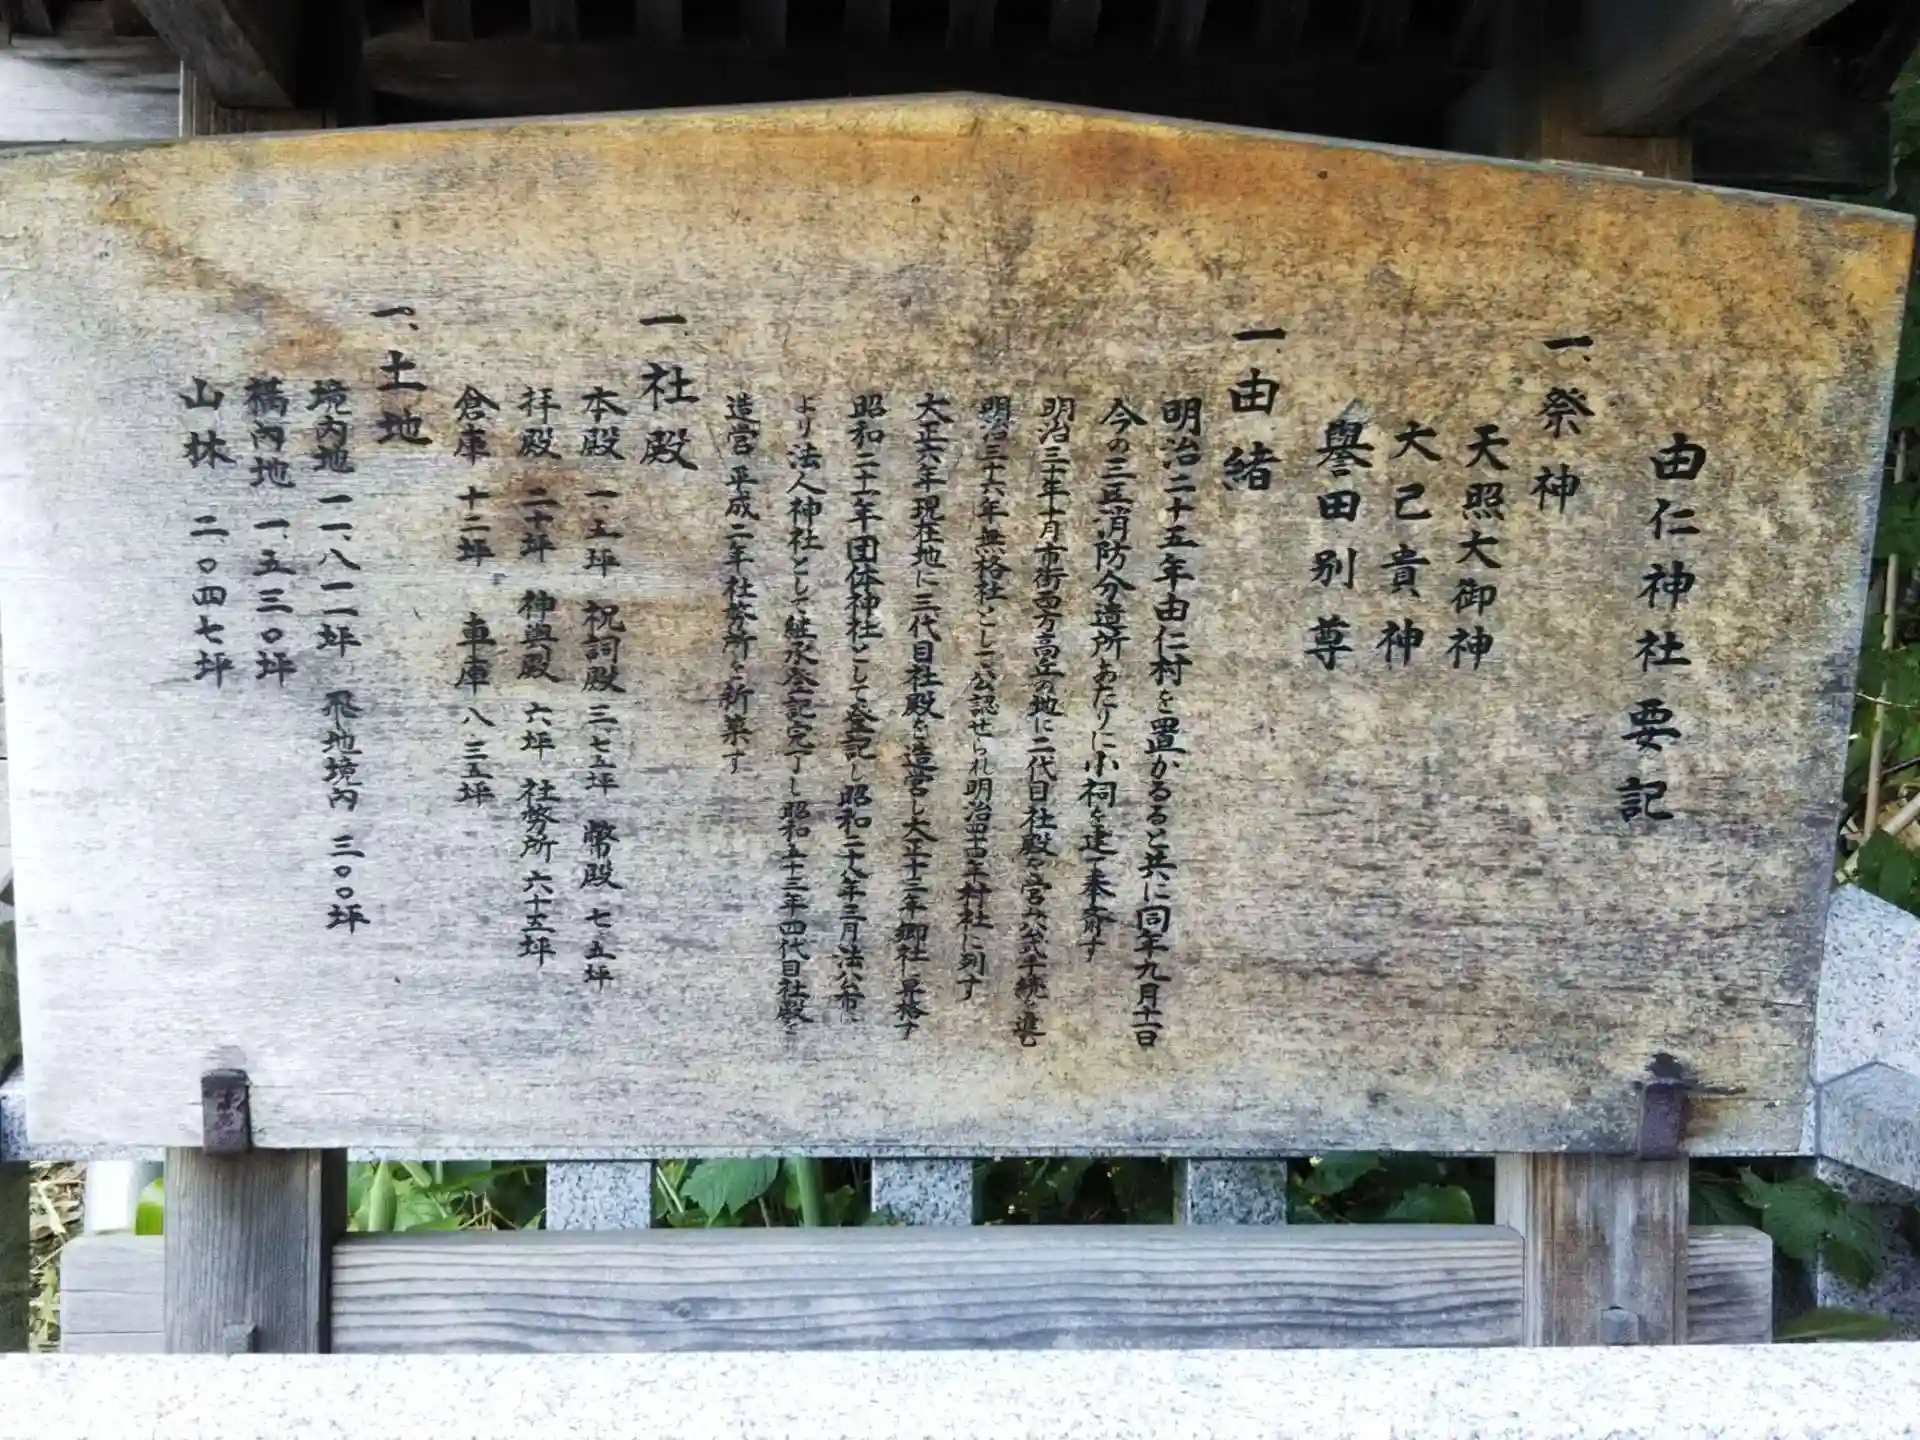 由仁神社要記
一、祭神
天照大御神
大己貴神
譽田別尊
一、由緒
明治二十五年由仁村を置かるると共に同年九月十一日
今の三区消防分遣所あたりに小祠を建て奉斎す
明治三十年十月市街西方高丘の地に二代目社殿を宮み公式手続を進む
明治三十六年無格社として公認せられ明治四十四年村社に列す
大正六年現在地に三代目社殿を造営し大正十三年郷社に昇格す
昭和二十一年団体神社として登記し昭和二十八年三月法人公布に
より法人神社として継承登記完了し昭和五十三年四代目社殿を
造営 平成二年社務所を新築す
一、社殿
本殿 一、五坪 祝詞殿 三、七五坪 幣殿 七、五坪
拝殿 二十坪 神輿殿 六坪 社務所 六十五坪
倉庫 十二坪 車庫 八、三五坪
一、土地
境内地 一一、八一一坪 飛地境内 三〇〇坪
構内地 一、五三〇坪
山林 二〇四七坪